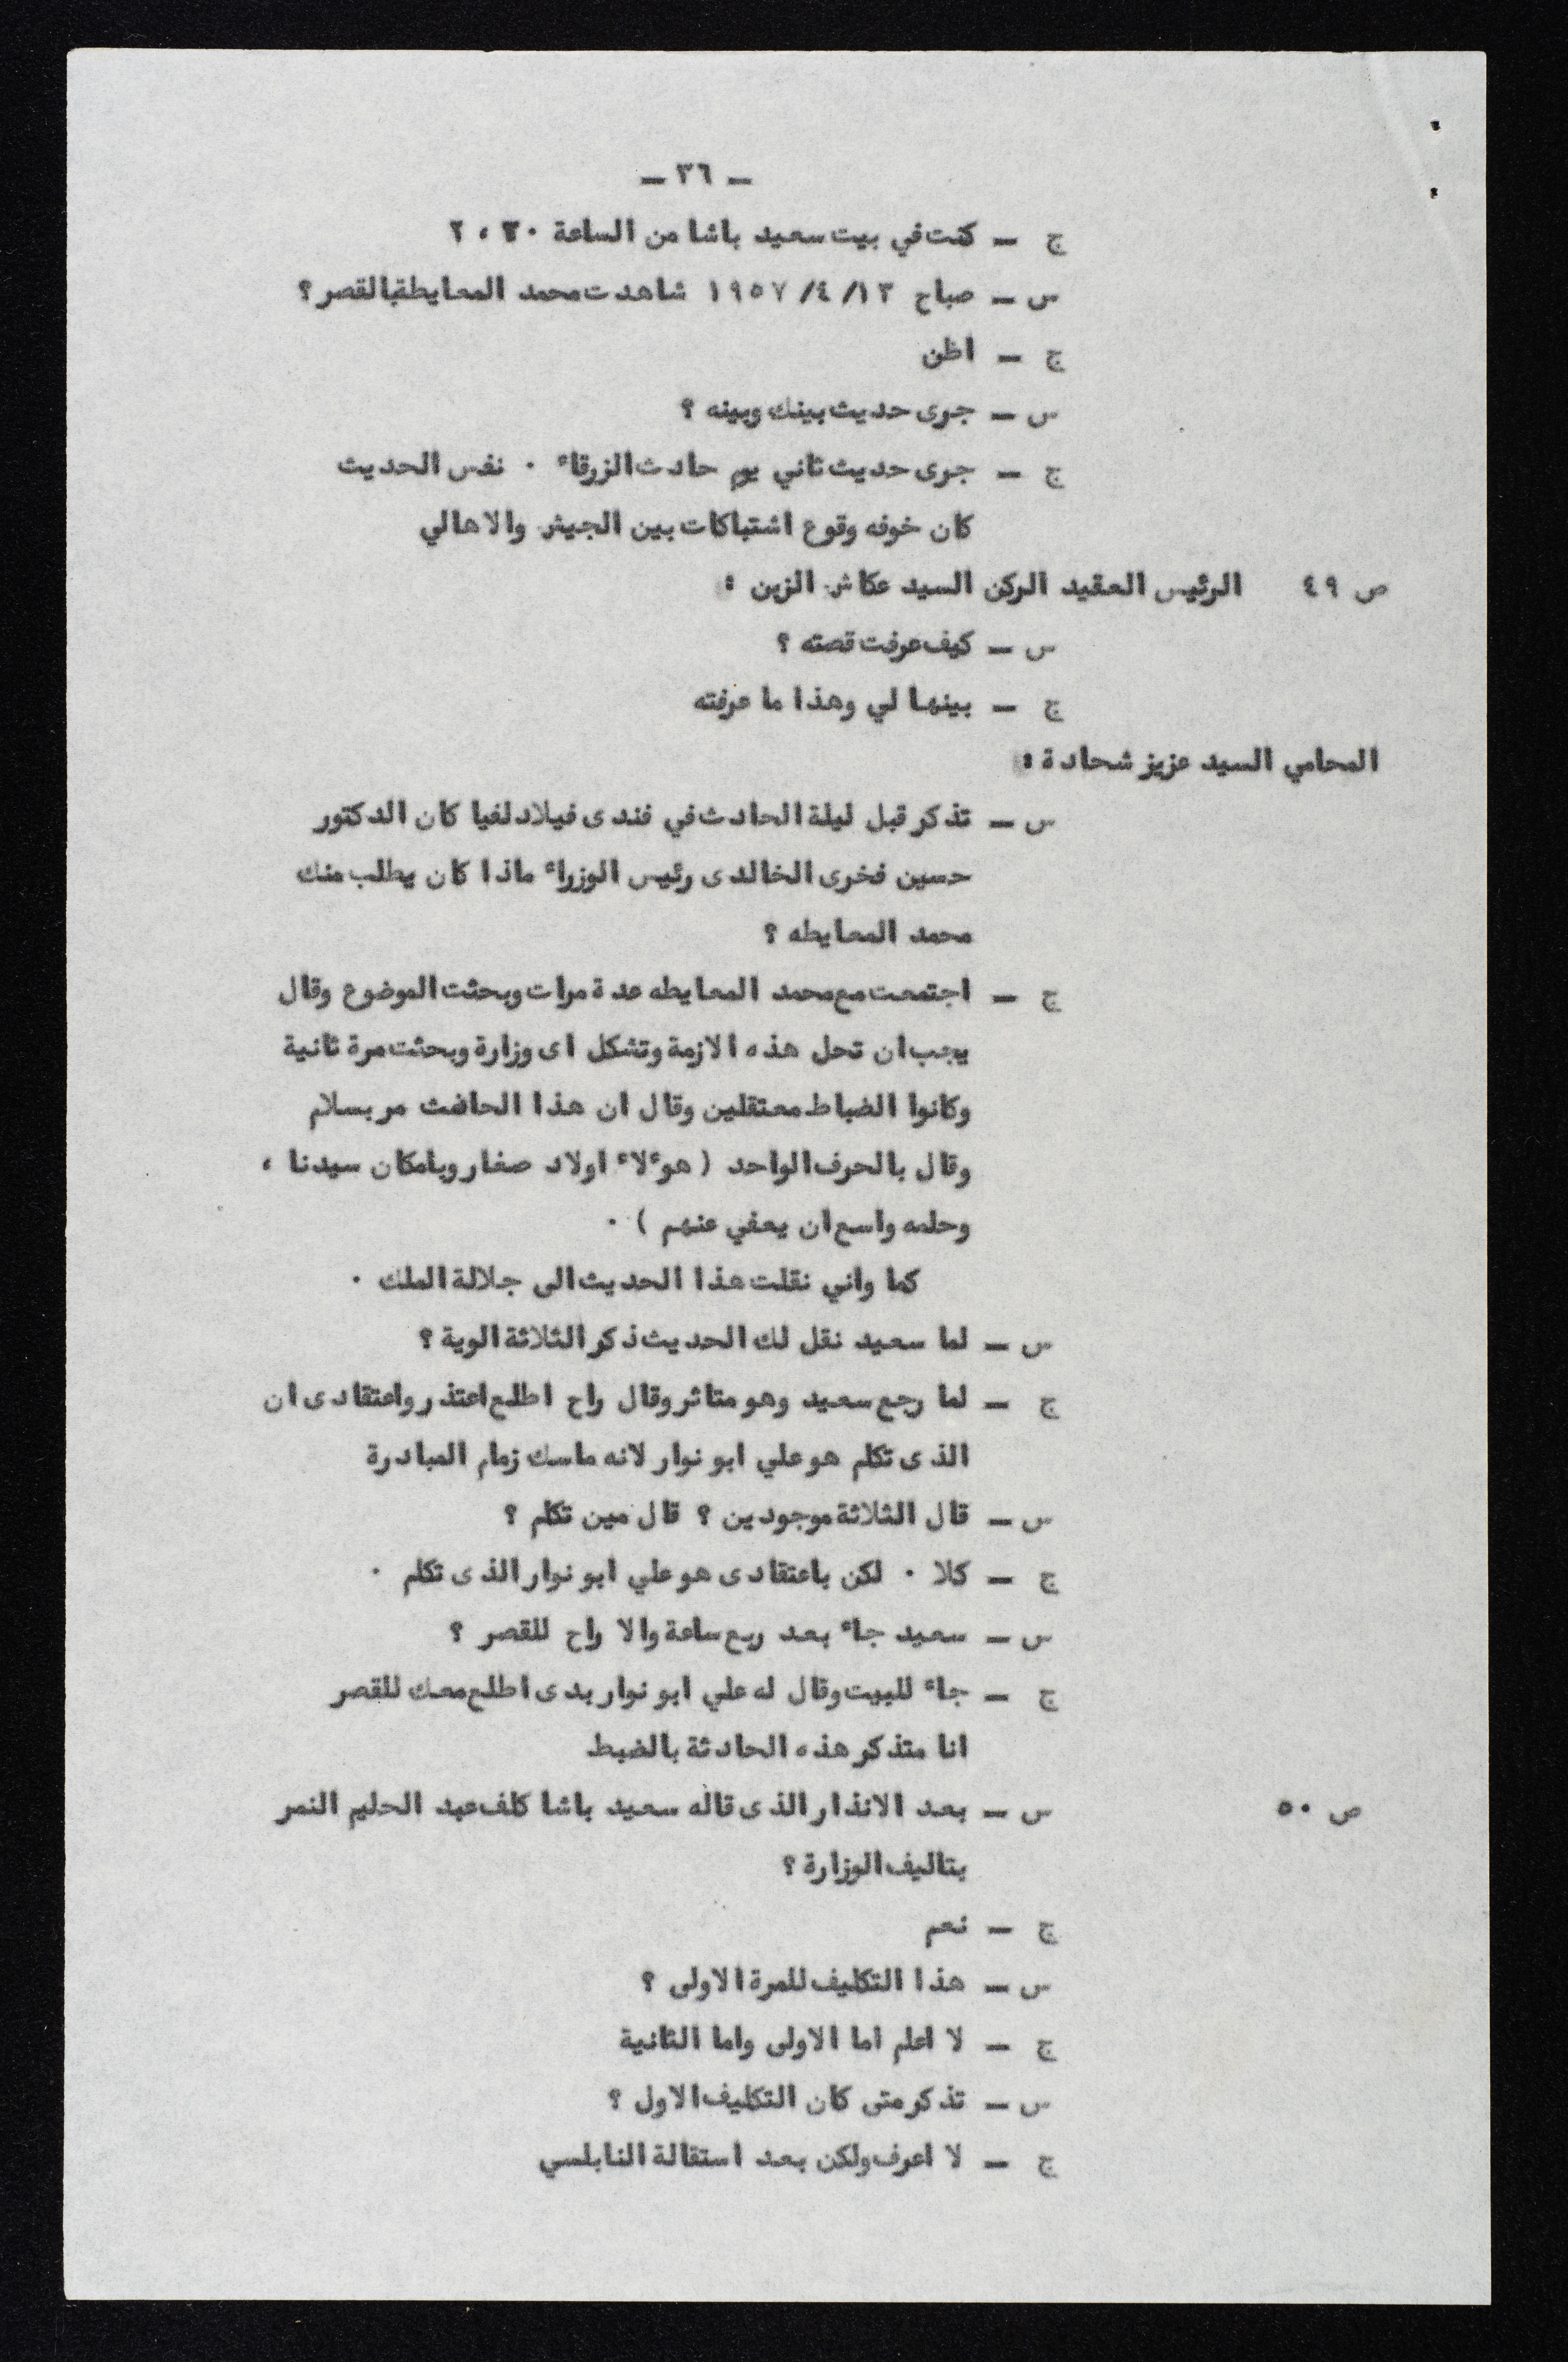 – ٣٦ –
ج – كنت في بيت سعيد باشا من الساعة ٢،٣٠
س – صباح ١٣/ ٤/ ١٩٥٧ شاهدت محمد المعايطة بالقصر ؟
ج – اظن
س – جرى حديث بينك وبينه ؟
ج – جرى حديث ثاني يوم حادث الزرقاء ٠ نفس الحديث
كان خوفه وقوع اشتباكات بين الجيش والاهالي
ص ٤٩ الرئيس العقيد الركن السيد عكاش الزبن :
س – كيف عرفت قصته ؟
ج – بينها لي وهذا ما عرفته
المحامي السيد عزيز شحادة :
س – تذكر قبل ليلة الحادث في فندى فيلادلفيا كان الدكتور
حسين فخرى الخالدى رئيس الوزراء ماذا كان يطلب منك
محمد المعايطه ؟
ج – اجتمعت مع محمد المعايطه عدة مرات وبحثت الموضوع وقال
يجب ان تحل هذه الازمة وتشكل اى وزارة وبحثت مرة ثانية
وكانوا الضباط معتقلين وقال ان هذا الحادث مر بسلام
وقال بالحرف الواحد ( هوءلاء اولاد صغار وبامكان سيدنا ،
وحلمه واسع ان يعفي عنهم ) ٠
كما واني نقلت هذا الحديث الى جلالة الملك ٠
س – لما سعيد نقل لك الحديث ذكر الثلاثة الوية ؟
ج – لما رجع سعيد وهو متاثر وقال راح اطلع اعتذر واعتقادى ان
الذى تكلم هو علي ابو نوار لانه ماسك زمام المبادرة
س – قال الثلاثة موجودين ؟ قال مين تكلم ؟
ج – كلا ٠ لكن باعتقادى هو علي ابو نوار الذى تكلم ٠
س – سعيد جاء بعد ربع ساعة والا راح للقصر ؟
ج – جاء للبيت وقال له علي ابو نوار بدى اطلع معك للقصر
انا متذكر هذه الحادثة بالضبط
ص ٥٠ س – بعد الانذار الذى قاله سعيد باشا كلف عبد الحليم النمر
بتاليف الوزارة ؟
ج – نعم
س – هذا التكليف للمرة الاولى ؟
ج – لا اعلم اما الاولى واما الثانية
س – تذكر متى كان التكليف الاول ؟
ج – لا اعرف ولكن بعد استقالة النابلسي